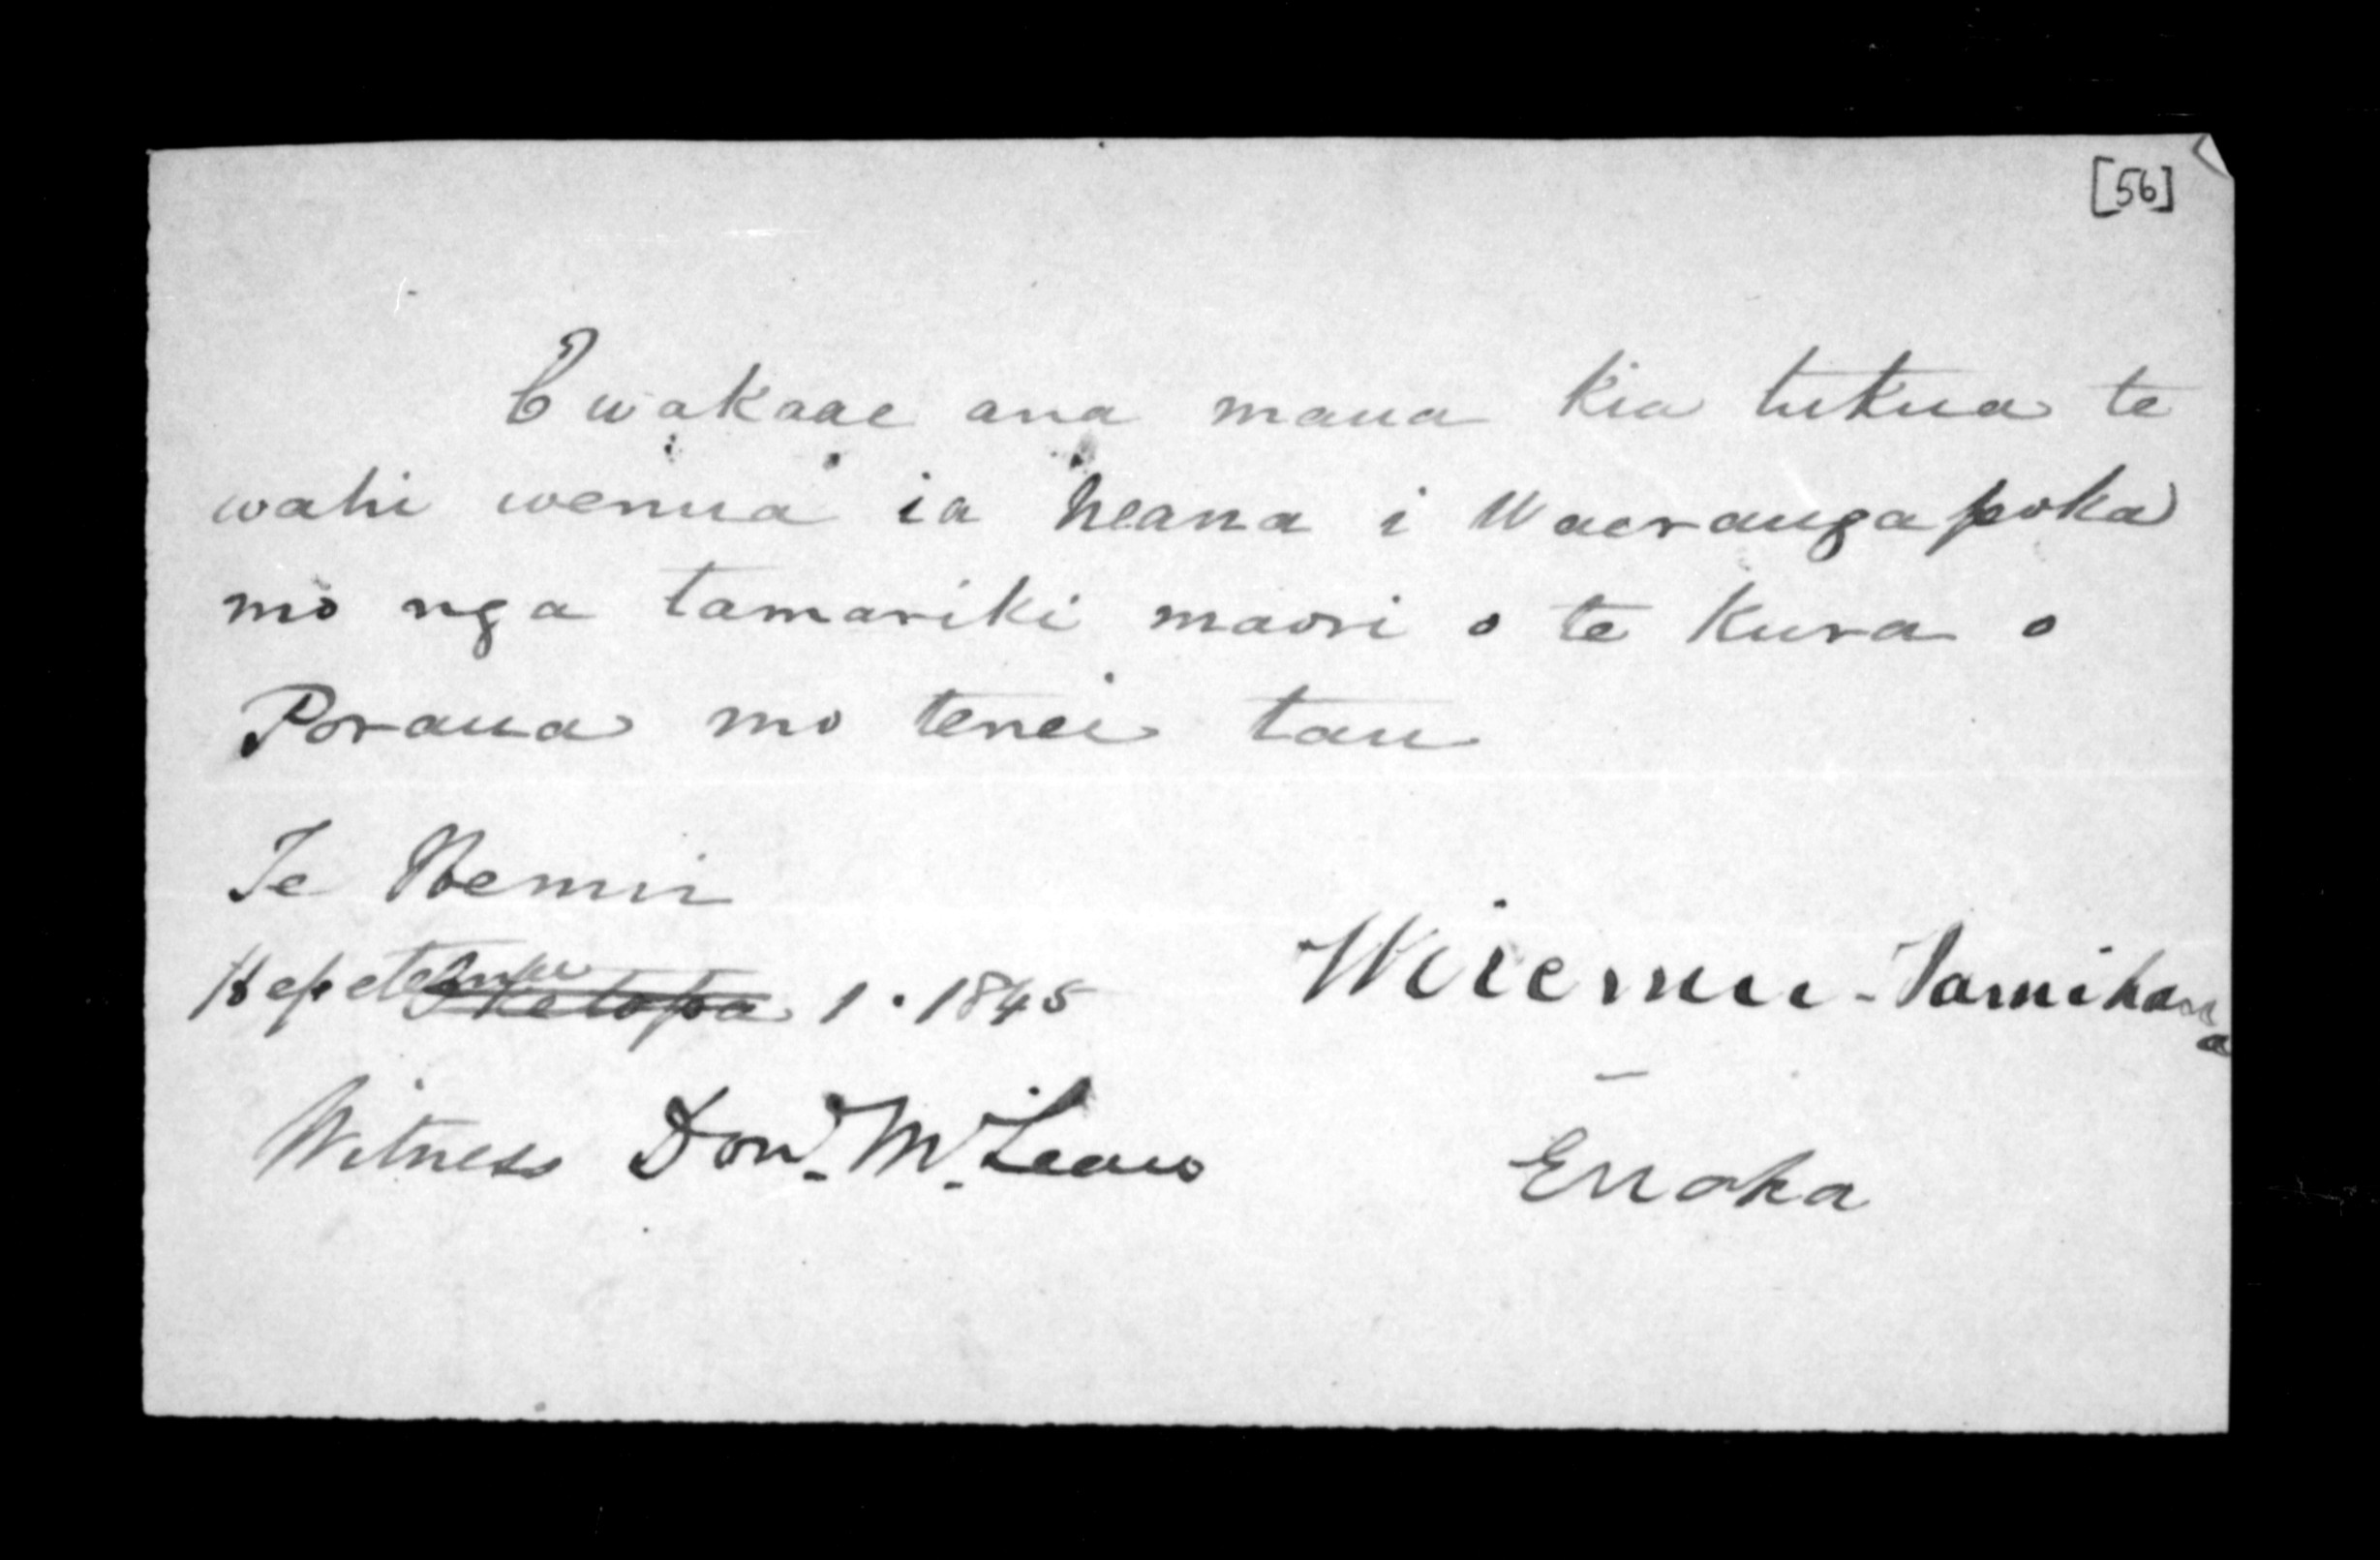 [56]
E wakaae ana maua kia tukua te
wahi wenua ia heana i Waerangapoka
mo nga tamariki maori o te kura o
Poraua mo tenei tau
Te Hemui
Hepetema Oketopa 1 . 1845
Wiremu - Tamihana
Witness Dond. McLean
Enoka